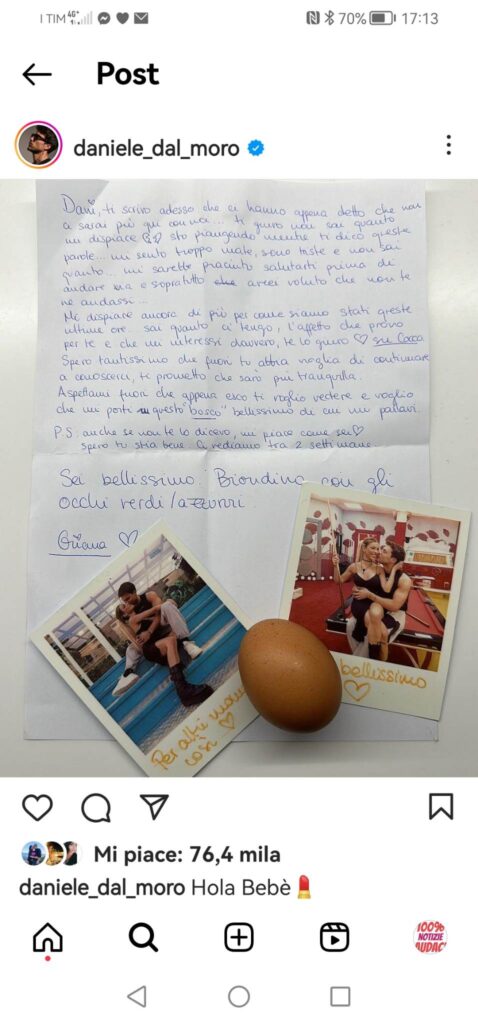 TIM 4G+ 70% 17:13
Post
daniele_dal_moro
Dani, ti scrivo adesso che ci hanno appena detto che non
sarai più qui con noi... ti giuro non sai quanto
mi dispiace sto piangendo mentre ti dico queste
parole... mi sento troppo male, sono triste e non sai
quanto... mi sarebbe piaciuto salutarti prima di
andare ma e sopratutto avrei voluto che non te
ne andassi...
Mi dispiace ancora di più per come siamo stati queste
ultime ore... sai quanto ci tengo, l'affetto che provo
per te e che mi interessi davvero, te lo giuro ♡ su
Spero tantissimo che fuori tu abbia voglia di continuare
a conoscerci, ti prometto che sarò più tranquilla.
Aspettami fuori che appena esco ti voglio vedere e voglio
che mi porti questo "bosco" bellissimo di cui mi parlavi.
P.S: anche se non te lo dicevo, mi piace come sei♡
spero tu stia bene. Ci vediamo tra 2 settimane.
Sei bellissimo. Biondino con gli
occhi verdi/azzurri.
Oriana ♡
Per altri
così ♡
bellissimo
♡
Mi piace: 76,4 mila
daniele_dal_moro Hola Bebè💄
100%
NOTIZIE